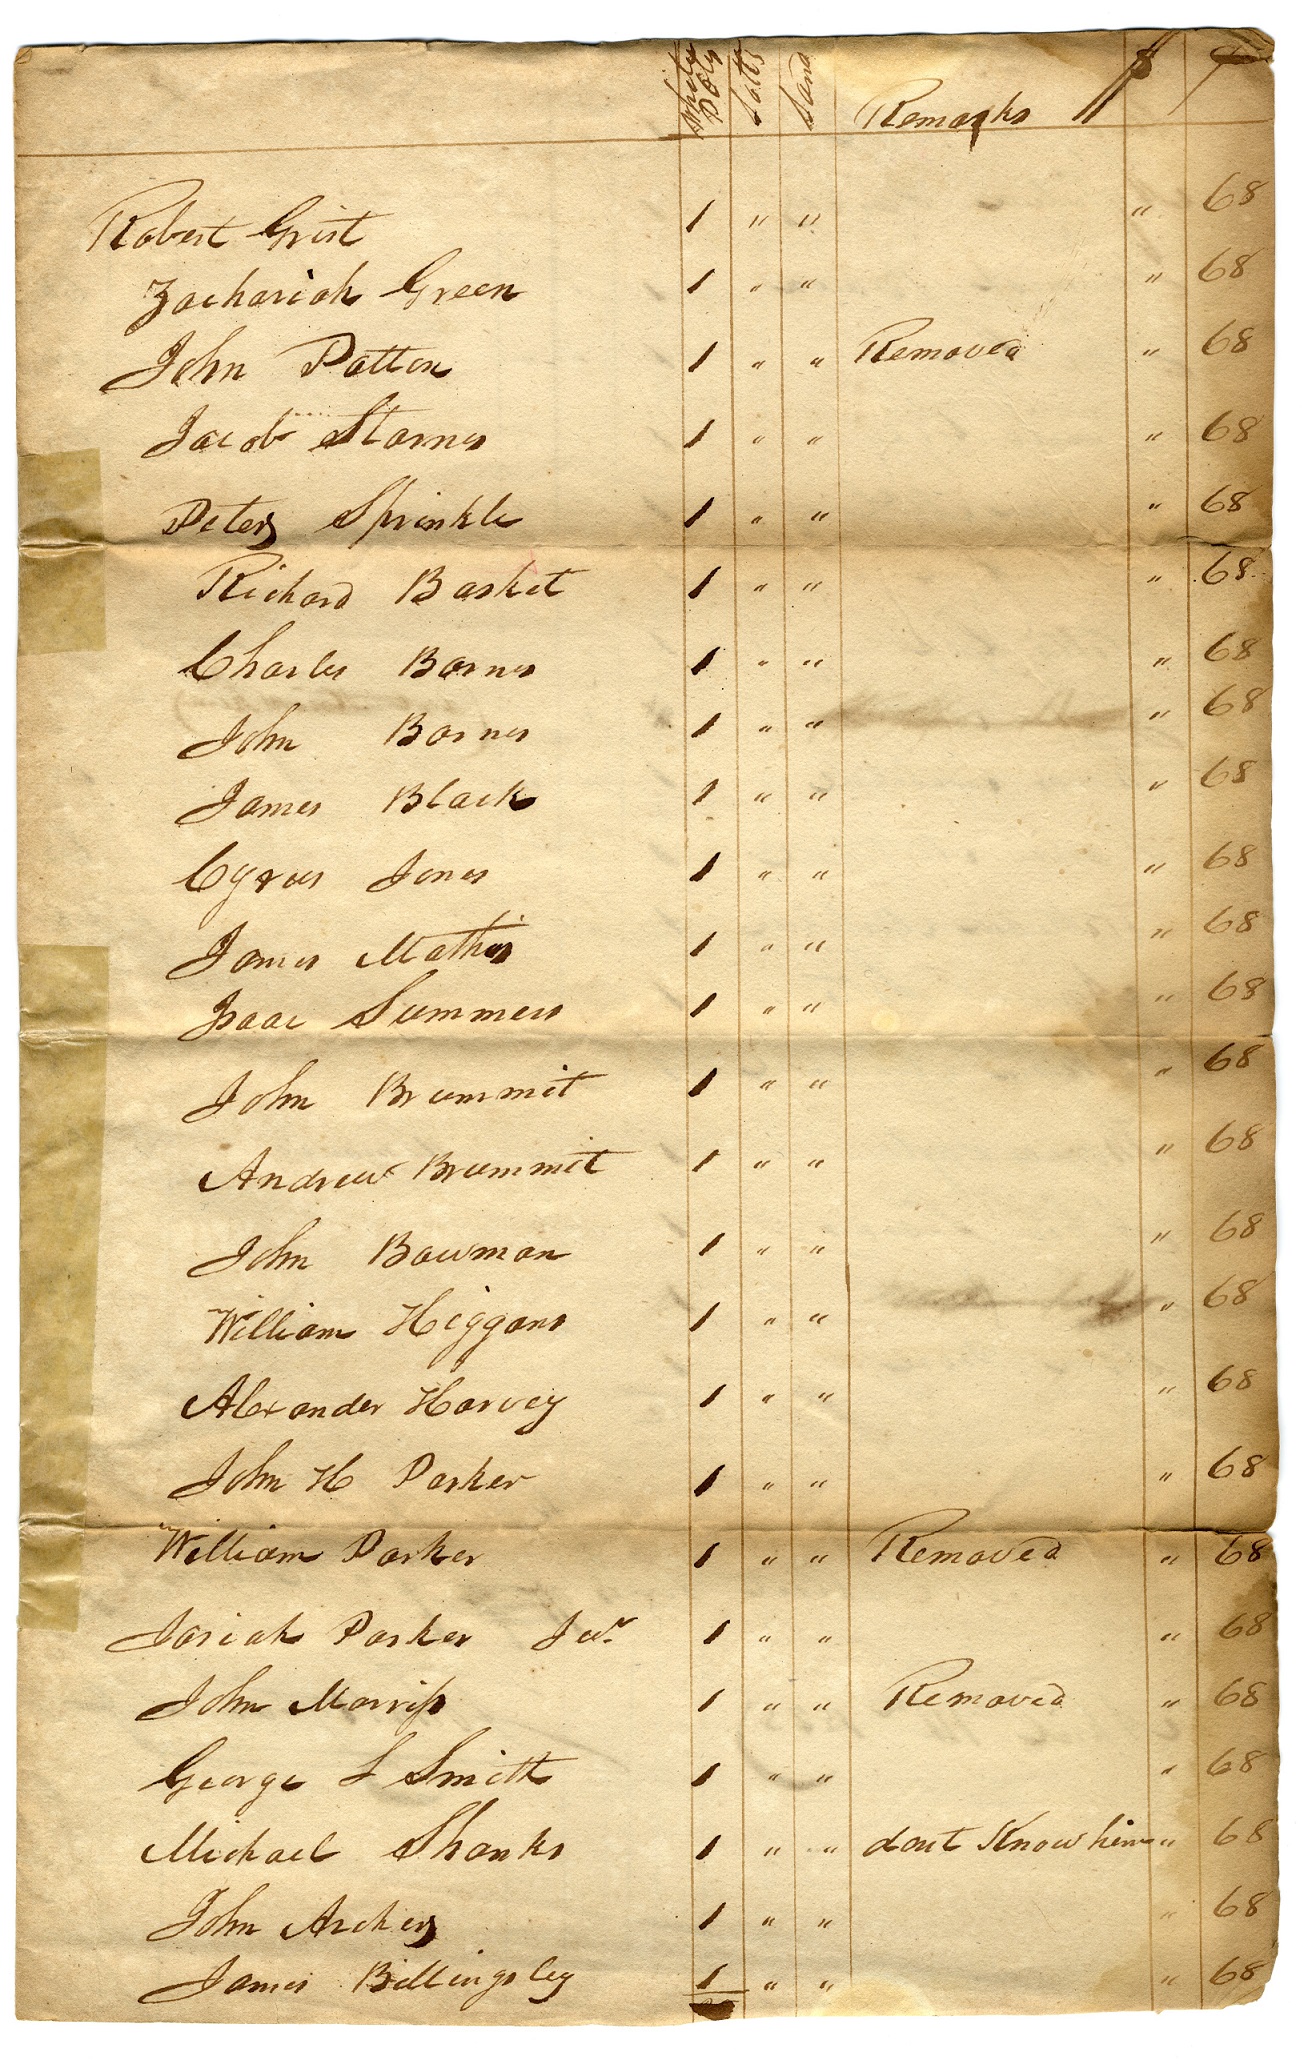 White Poly Lotts Land Remarks $ ¢
Robert Grist 1 " " " 68
Zachariah Green 1 " " " 68
John Patton 1 " " Removed " 68
Jacob Starnes 1 " " " 68
Peter Sprinkle 1 " " " 68
Richard Basket 1 " " " 68
Charles Barnes 1 " " " 68
John Barnes 1 " " " 68
James Black 1 " " " 68
Cyrus Jones 1 " " " 68
James Mathis 1 " " " 68
Isaac Summers 1 " " " 68
John Brummit 1 " " " 68
Andrew Brummit 1 " " " 68
John Bowman 1 " " " 68
William Higgans 1 " " " 68
Alexander Harvey 1 " " " 68
John H Parker 1 " " " 68
William Parker 1 " " Removed " 68
Josiah Parker Junr 1 " " " 68
John Morriss 1 " " Removed " 68
George L Smith 1 " " " 68
Michael Shanks 1 " " dont Know him " 68
John Archer 1 " " " 68
James Billingsley 1 " " " 68